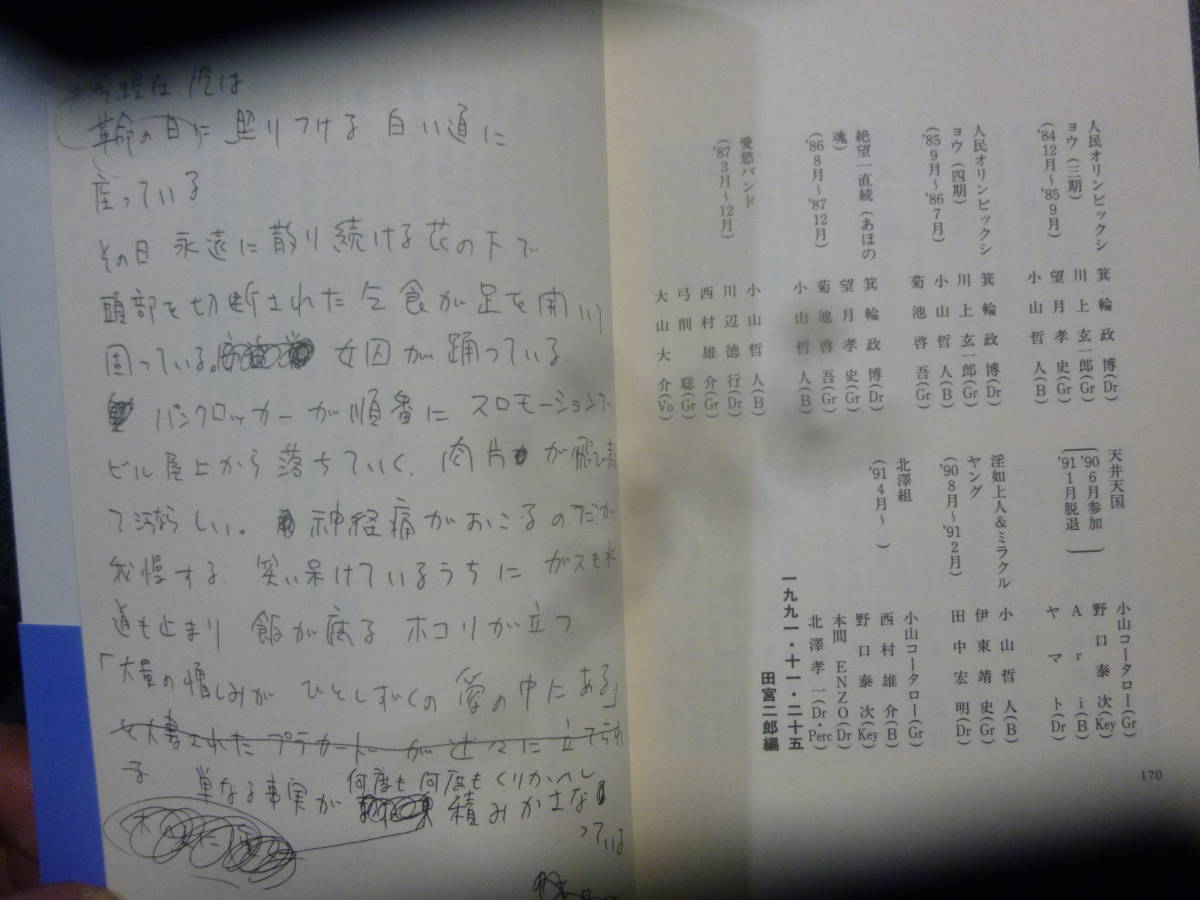 今現在、俺は
革命の日に 照りつける 白い道に
座っている
その日 永遠に散り続ける花の下で
頭部を切断された乞食が足を開いて
困っている。 女囚が踊っている
パンクロッカーが順番に スローモーションで
ビル屋上から落ちていく、肉片が飛び
しい。 神経痛がおこるのだが
我慢する。 笑い呆けているうちに ガスも水
道も止まり 飯が腐る ホコリが立つ
「大量の憎しみが ひとしずくの愛の中にある」
と大書されたプラカードが 々に立てられ
る
単なる事実が 何度も何度もくりかへし
積みかさな
っている
人民オリンピックシ
ョウ(三期)
('84 12月〜'85 9月)
箕輪政博(Dr)
川上玄一郎(Gr)
望月孝史(Gr)
小山哲人(B)
人民オリンピックシ
ョウ(四期)
('85 9月〜'86 7月)
箕輪政博(Dr)
川上玄一郎(Gr)
小山哲人(B)
菊池啓吾(Gr)
絶望一直線(あほの
魂)
('86 8月〜'87 12月)
箕輪政博(Dr)
望月孝史(Gr)
菊池啓吾(Gr)
小山哲人(B)
愛慾バンド
('87 3月〜12月)
小山哲人(B)
川辺徳行(Dr)
西村雄介(Gr)
弓削聡(Gr)
大山大介(Vo)
天井天国
('90 6月参加
'91 1月脱退)
小山コータロー(Gr)
野口泰次(Key)
Ari(B)
ヤマト(Dr)
淫如上人&ミラクル
ヤング
('90 8月〜'91 2月)
小山哲人(B)
伊東靖史(Gr)
田中宏明(Dr)
北澤組
('91 4月〜 )
小山コータロー(Gr)
西村雄介(B)
野口泰次(Key)
本間ENZO(Dr)
北澤孝一(Dr・Perc)
一九九一・十一・二十五
田宮二郎編
170